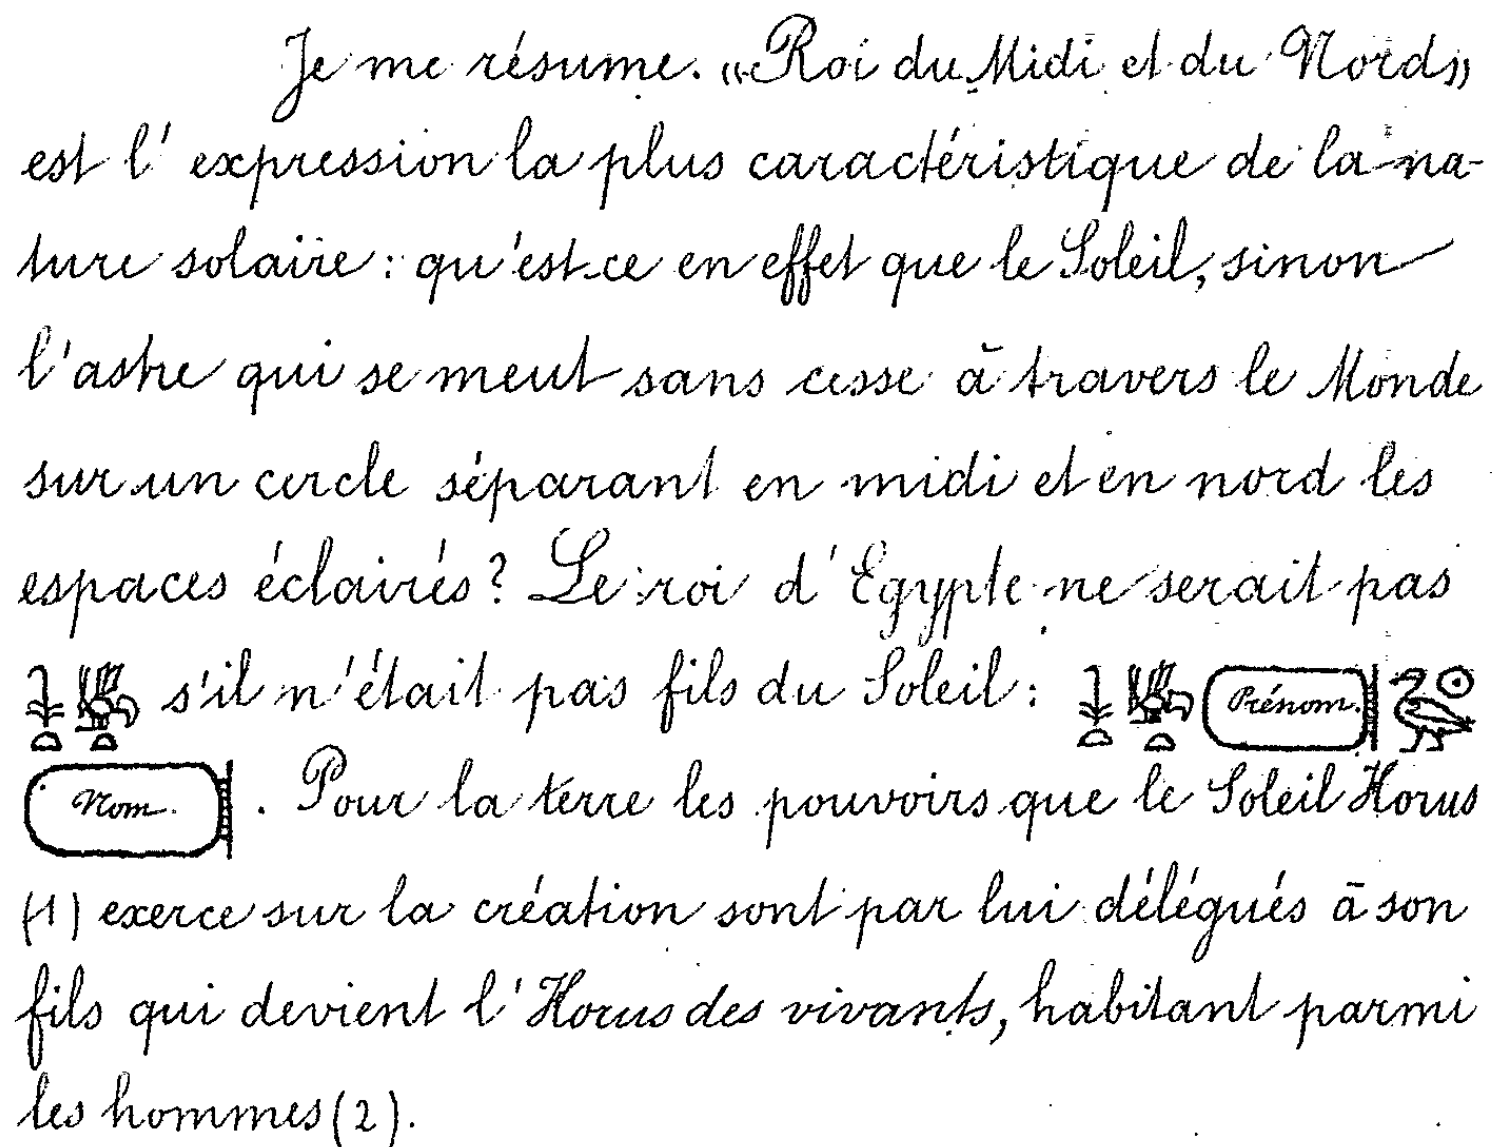 Je me résume. «Roi du Midi et du Nord»
est l'expression la plus caractéristique de la na-
ture solaire : qu'est-ce en effet que le Soleil, sinon
l'astre qui se meut sans cesse à travers le Monde
sur un cercle séparant en midi et en nord les
espaces éclairés ? Le roi d'Egypte ne serait pas
𓇓𓏏𓆤𓏏 s'il n'était pas fils du Soleil : 𓇓𓏏𓆤𓏏 Prénom. 𓅭𓇳
Nom. . Pour la terre les pouvoirs que le Soleil Horus
(1) exerce sur la création sont par lui délégués à son
fils qui devient l'Horus des vivants, habitant parmi
les hommes (2).